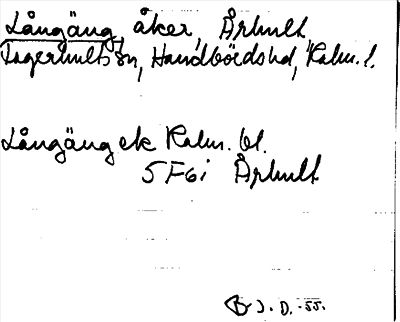 Långäng, åker, Århult
Fagerhults sn, Handbörds hd, Kalm. l.
Långäng ek Kalm. bl.
5 F6i Århult
J. D. -55.